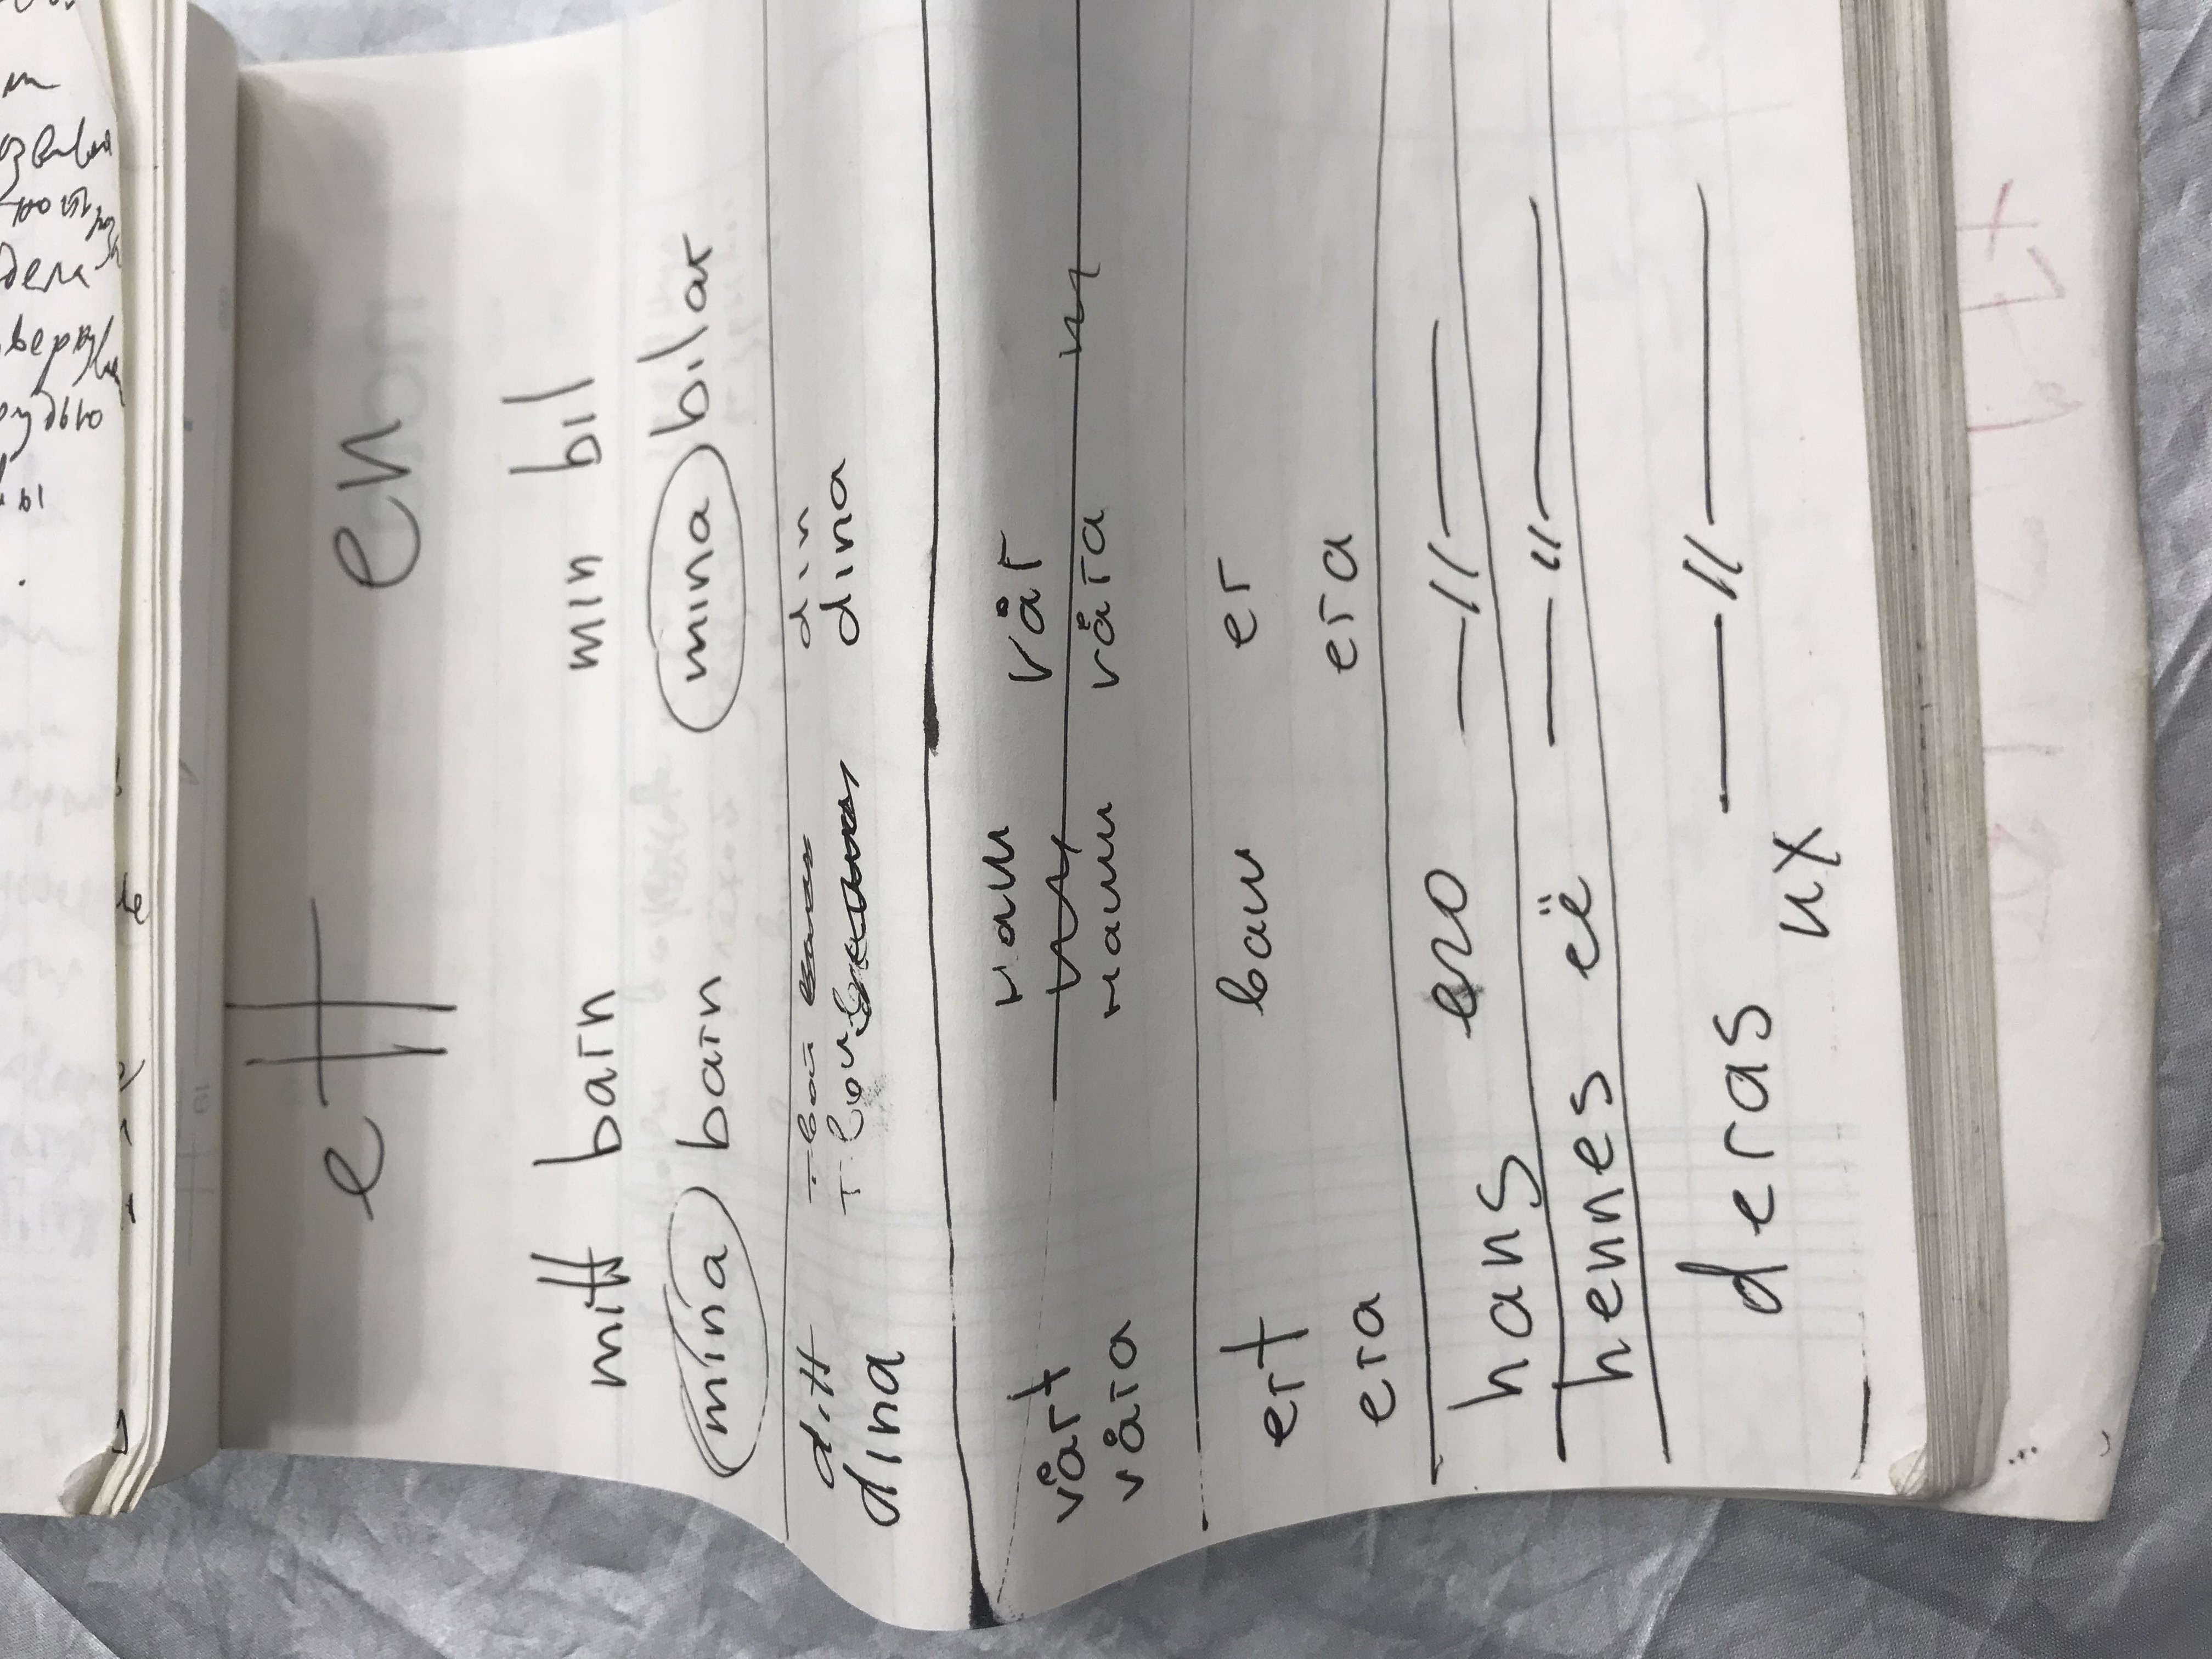 ett en
mitt barn min bil
mina barn mina bilar
ditt твой din
dina твои dina
vårt наш vår
våra наши våra
ert ваш er
era era
hans его —//—
hennes её —//—
deras их —//—